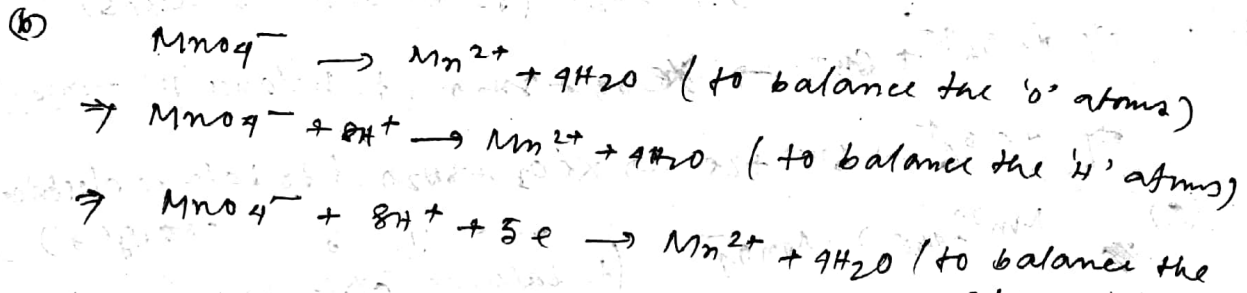 (b) MnO4⁻ → Mn²⁺ + 4H2O (to balance the 'O' atoms)
⇒ MnO4⁻ + 8H⁺ → Mn²⁺ + 4H2O (to balance the 'H' atoms)
⇒ MnO4⁻ + 8H⁺ + 5e → Mn²⁺ + 4H2O (to balance the